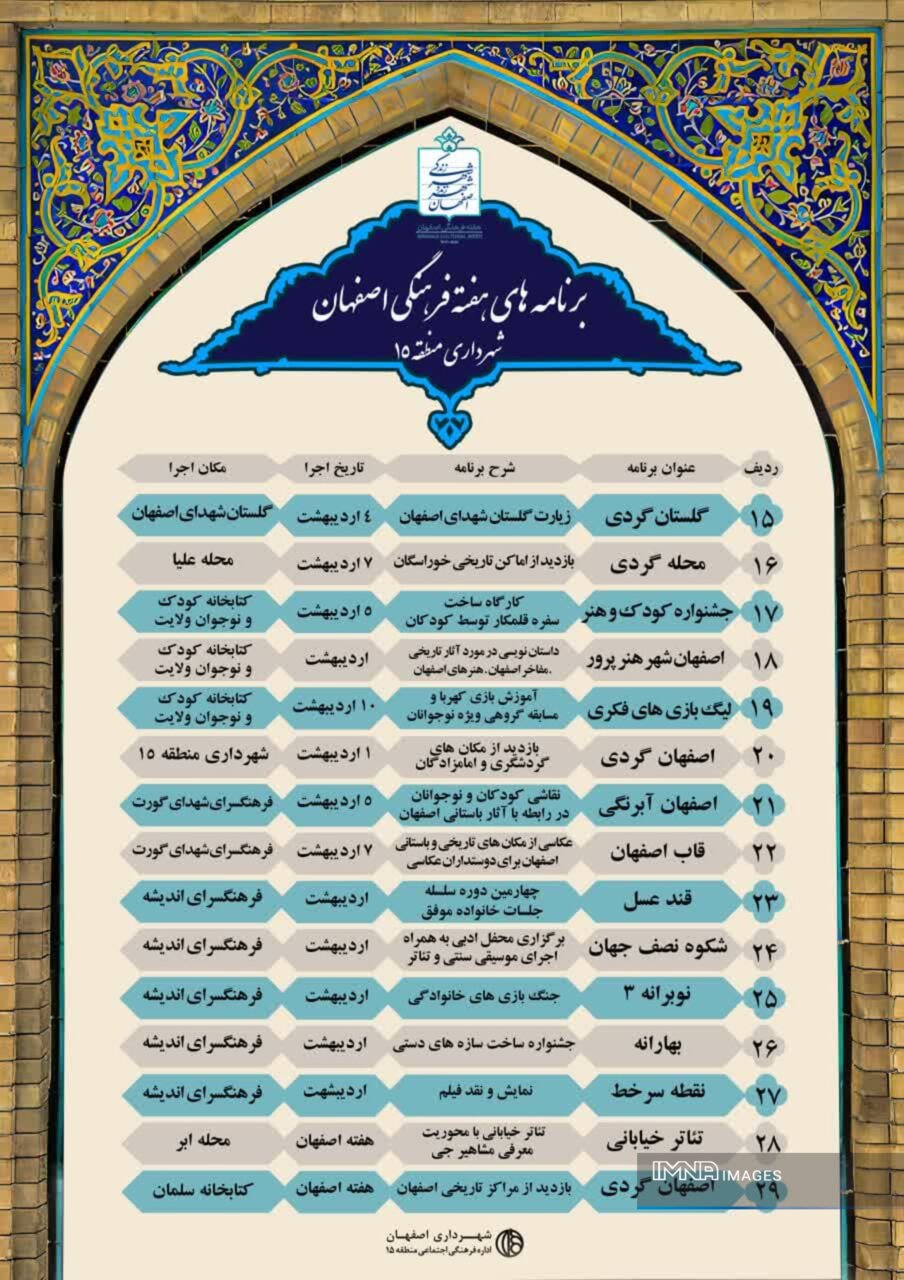 شهر زندگی
شهر زنده
اصفهان
هفته فرهنگی اصفهان
برنامه های هفته فرهنگی اصفهان
شهرداری منطقه ۱۵
ردیف عنوان برنامه شرح برنامه تاریخ اجرا مکان اجرا
۱۵ گلستان گردی زیارت گلستان شهدای اصفهان ۴ اردیبهشت گلستان شهدای اصفهان
۱۶ محله گردی بازدید از اماکن تاریخی خوراسگان ۷ اردیبهشت محله علیا
۱۷ جشنواره کودک و هنر کارگاه ساخت سفره قلمکار توسط کودکان ۵ اردیبهشت کتابخانه کودک و نوجوان ولایت
۱۸ اصفهان شهر هنر پرور داستان نویسی در مورد آثار تاریخی .مفاخر اصفهان. هنرهای اصفهان اردیبهشت کتابخانه کودک و نوجوان ولایت
۱۹ لیگ بازی های فکری آموزش بازی کهربا و مسابقه گروهی ویژه نوجوانان ۱۰ اردیبهشت کتابخانه کودک و نوجوان ولایت
۲۰ اصفهان گردی بازدید از مکان های گردشگری و امامزادگان ۱ اردیبهشت شهرداری منطقه ۱۵
۲۱ اصفهان آبرنگی نقاشی کودکان و نوجوانان در رابطه با آثار باستانی اصفهان ۵ اردیبهشت فرهنگسرای شهدای گورت
۲۲ قاب اصفهان عکاسی از مکان های تاریخی و باستانی اصفهان برای دوستداران عکاسی ۷ اردیبهشت فرهنگسرای شهدای گورت
۲۳ قند عسل چهارمین دوره سلسله جلسات خانواده موفق اردیبهشت فرهنگسرای اندیشه
۲۴ شکوه نصف جهان برگزاری محفل ادبی به همراه اجرای موسیقی سنتی و تئاتر اردیبهشت فرهنگسرای اندیشه
۲۵ نوبرانه ۳ جنگ بازی های خانوادگی اردیبهشت فرهنگسرای اندیشه
۲۶ بهارانه جشنواره ساخت سازه های دستی اردیبهشت فرهنگسرای اندیشه
۲۷ نقطه سرخط نمایش و نقد فیلم اردیبشهت فرهنگسرای اندیشه
۲۸ تئاتر خیابانی تئاتر خیابانی با محوریت معرفی مشاهیر جی هفته اصفهان محله ابر
۲۹ اصفهان گردی بازدید از مراکز تاریخی اصفهان هفته اصفهان کتابخانه سلمان
IMNA IMAGES
شهرداری اصفهان
اداره فرهنگی اجتماعی منطقه ۱۵